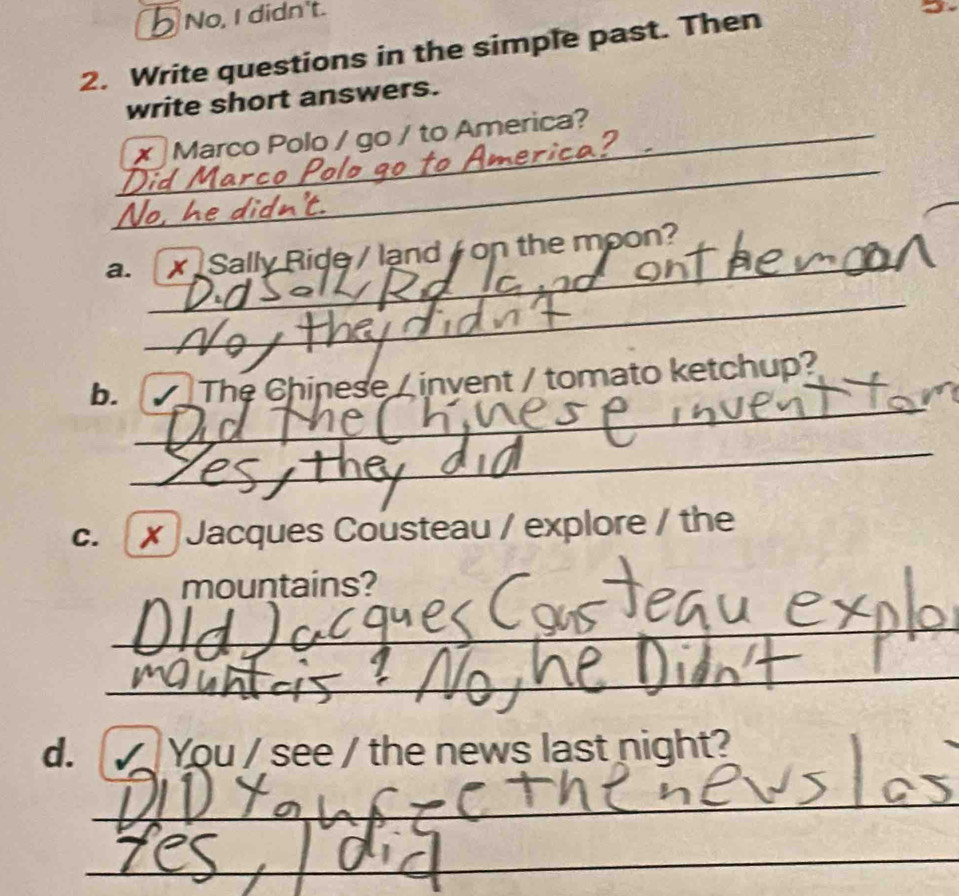 b No, I didn't.
2. Write questions in the simple past. Then
write short answers.
x Marco Polo / go / to America?
Did Marco Polo go to America?
No, he didn't.
a. x Sally Ride / land / on the moon?
Did Sally Rd land ont he moon
No, they didn't
b. ✓ The Chinese / invent / tomato ketchup?
Did the Chinese invent tom
Yes, they did
c. x Jacques Cousteau / explore / the
mountains?
Did Jacques Cousteau explo
mountais? No, he Didn't
d. ✓ You / see / the news last night?
DID You see the news las
Yes, I did